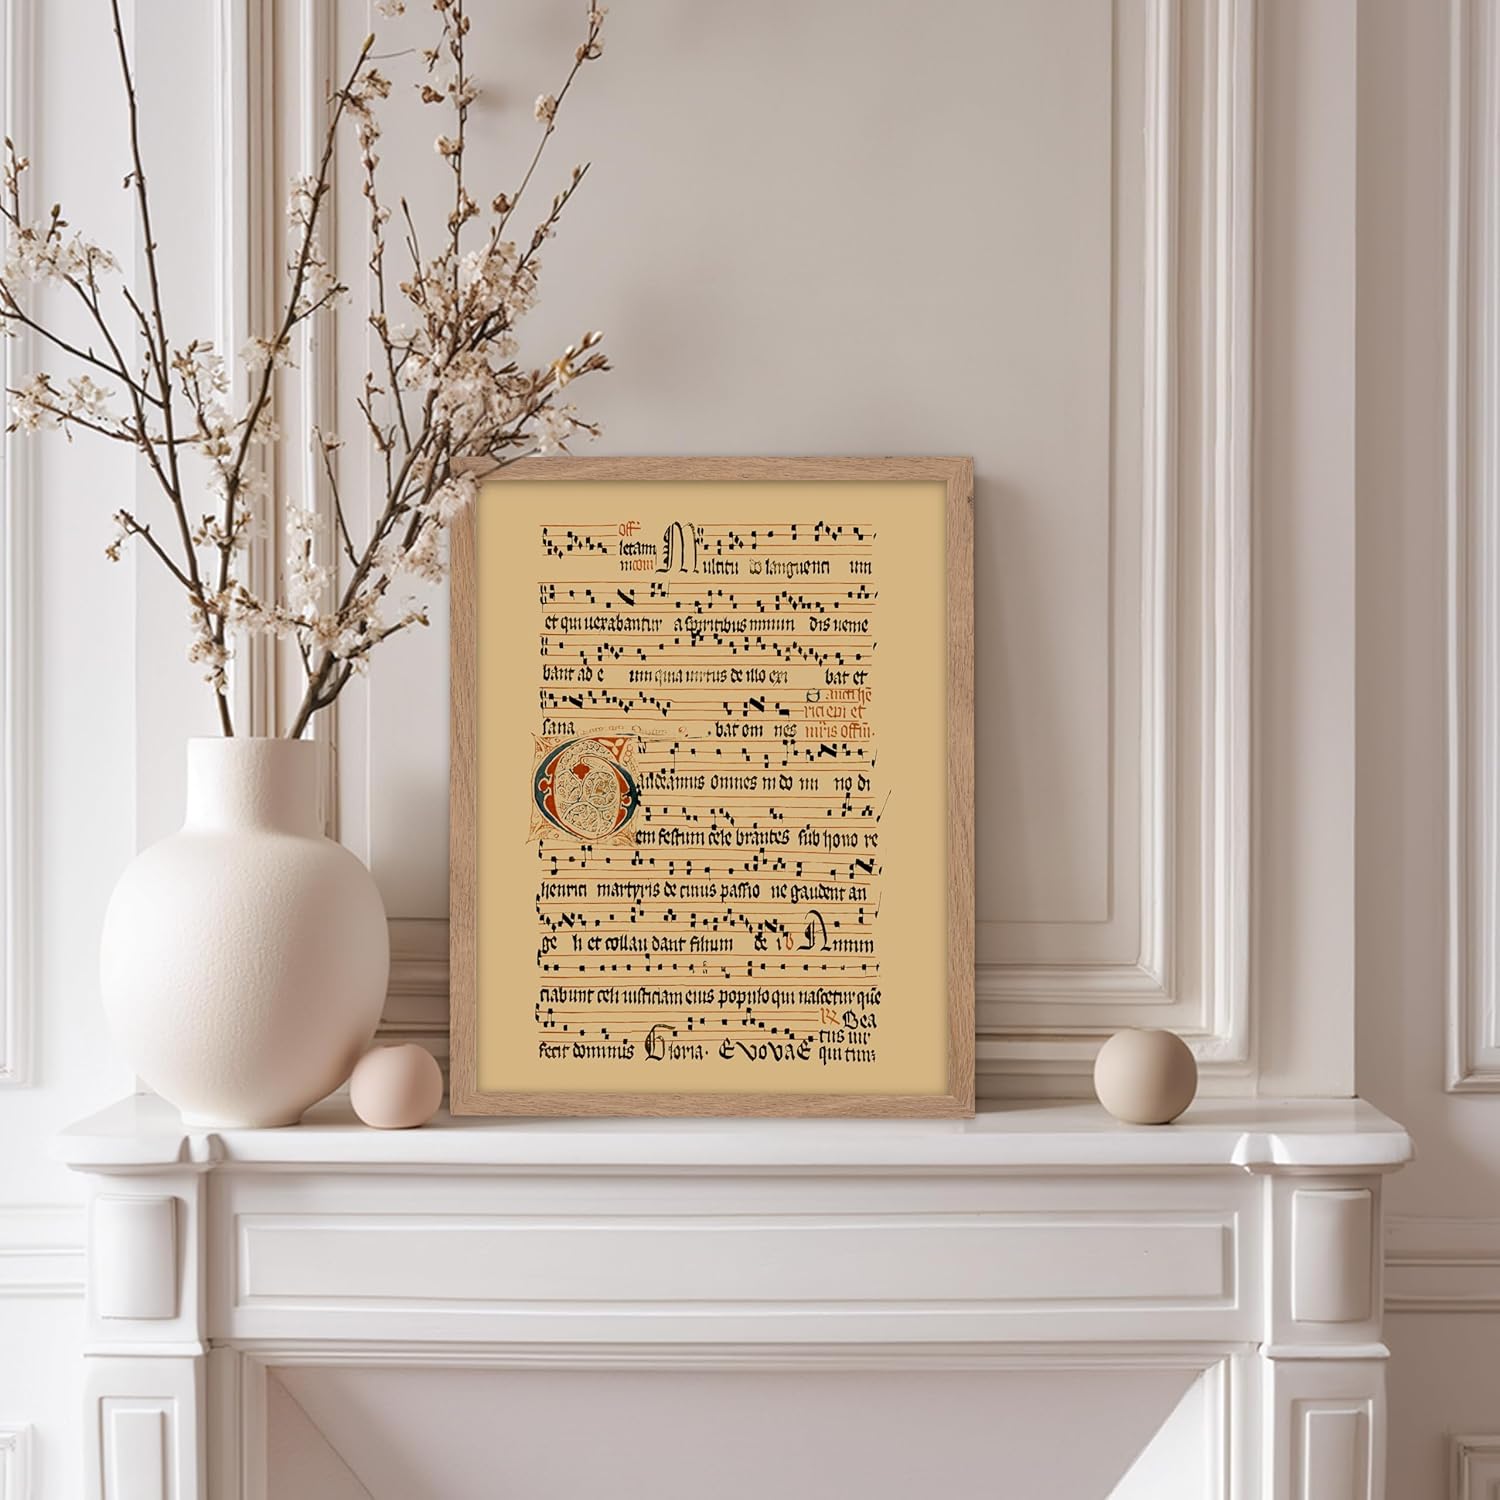 off
letann Multitu do languenti um
mcom
et qui uexabantur a spiritibus immun dis ueme
bant ad e um quia uirtus de illo exi bat et
Sancti he
rici epi et
sana bat om nes mris offm.
Gaudeamus omnes in do mi no di
em festum cele brantes sub hono re
henrici martyris de cuius passio ne gaudent an
ge li et collau dant filium de i V Annun
ciabunt celi iusticiam eius populo qui nascetur que
R Bea
tus uir
fecit dominus Gloria. EVOVAE qui tim;